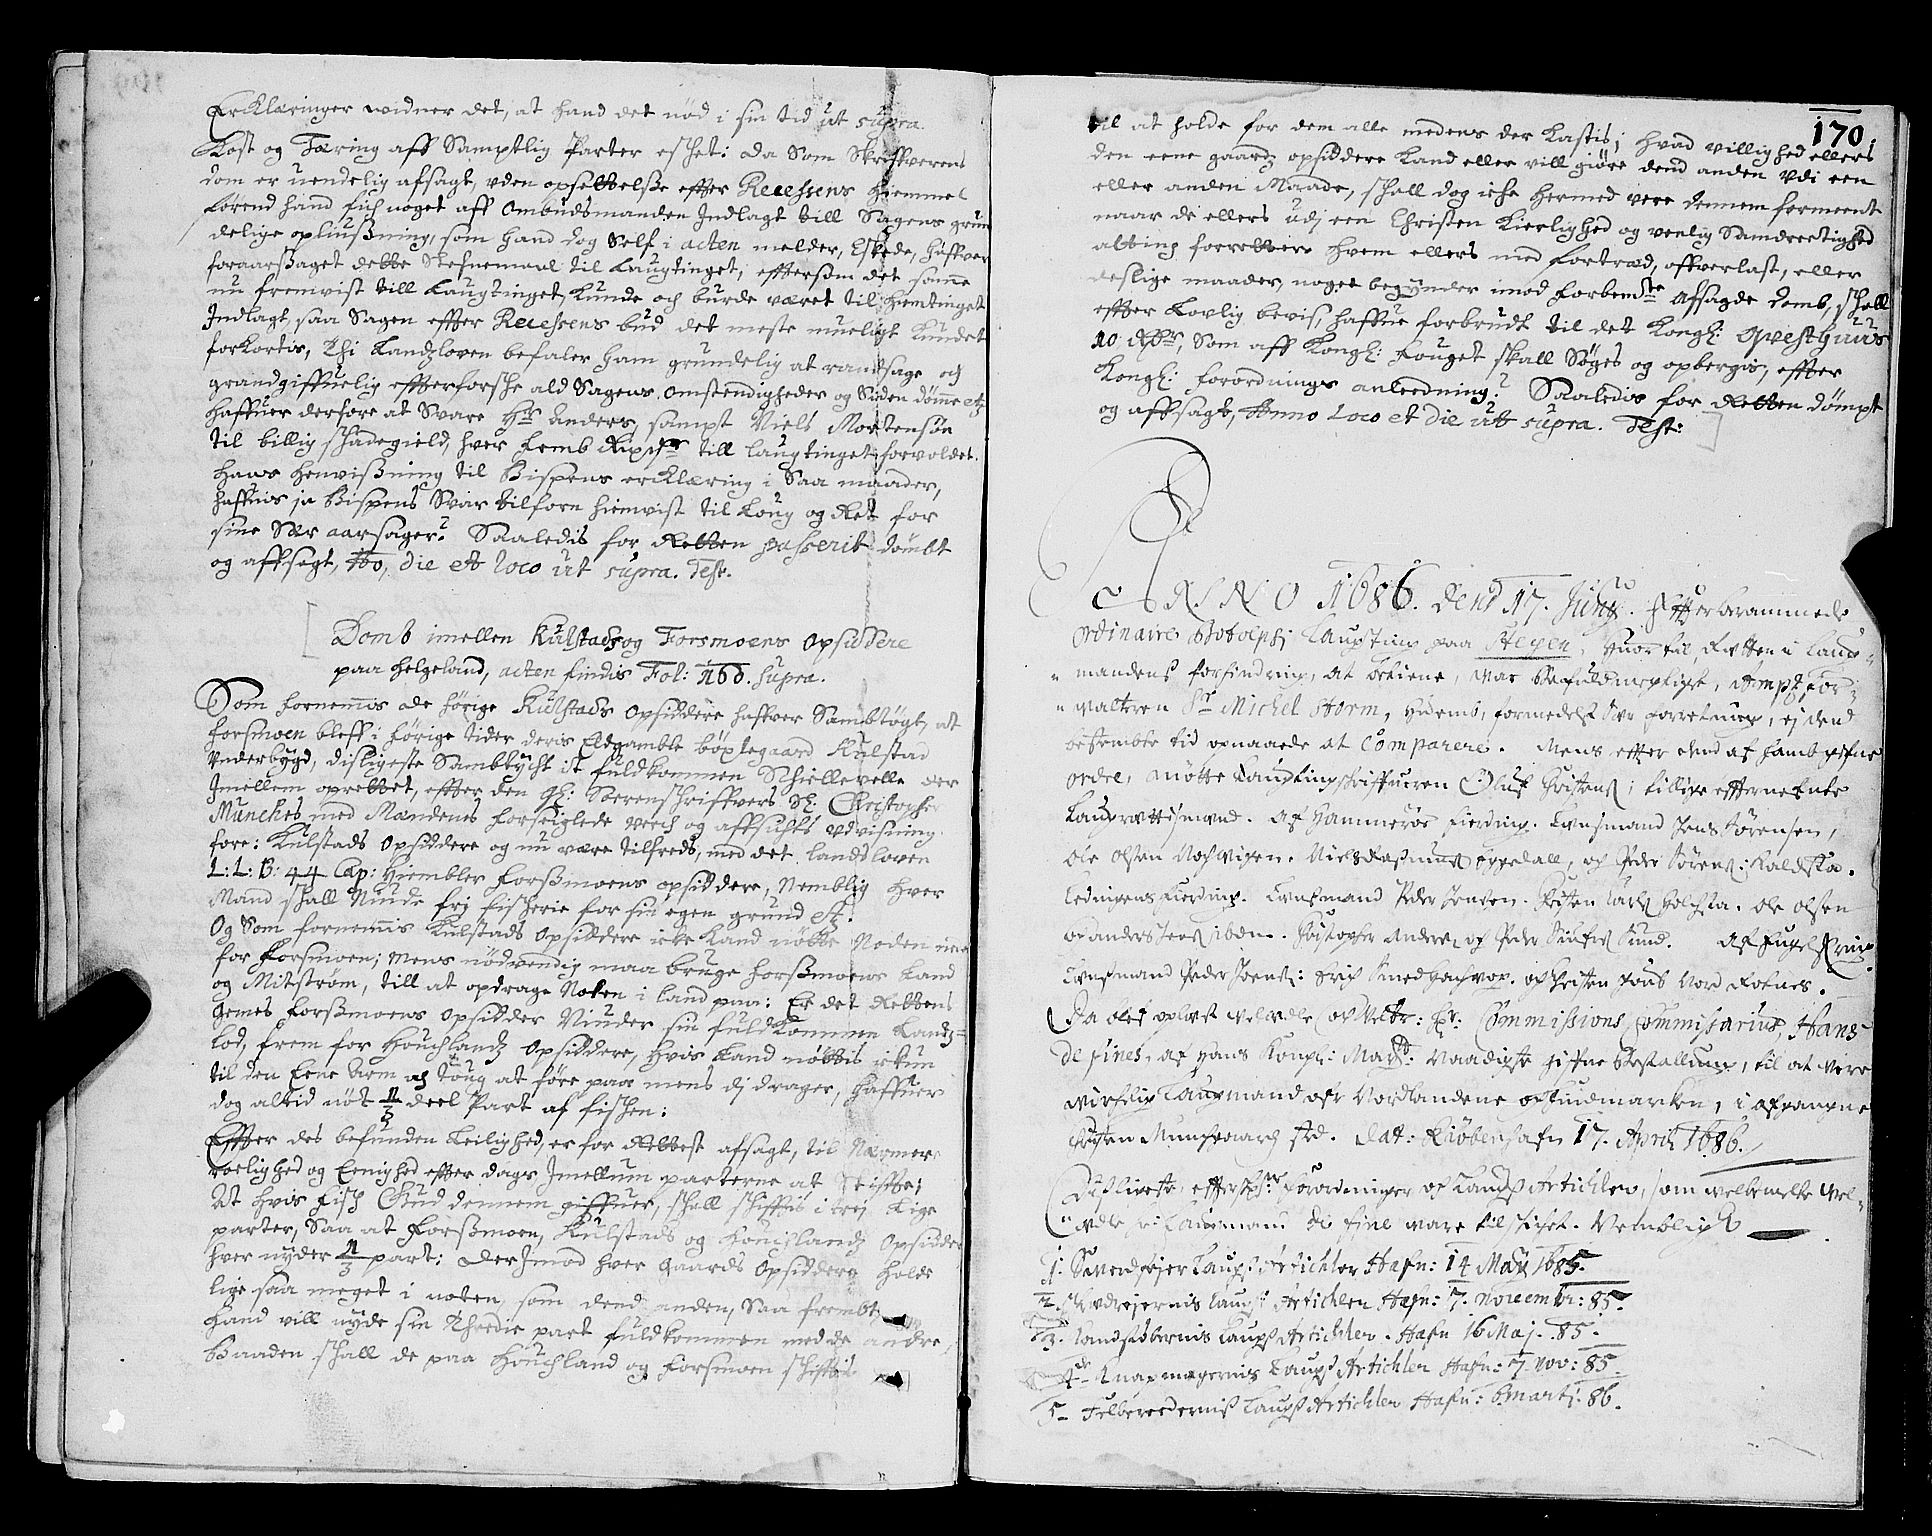 Erklæringer widner det, at hand det nød i sin tid ut supra.
Kost og Tæring aff Samptlig Parter eschet: da Som Skriffverens
dom er uendelig afsagt, uden opsettelsse effter Recessens Hiemmel
förend hand fich noget aff Ombudsmanden Indlagt till Sagens grün
delige opliussning, som hand dog Self i acten melder, Eskede, haffver
foraarssaget dette Stefnemaal til Laugtinget, effterssom det samme
nu fremvist till Laugtinget, Kunde och burde været til hiemtinget
Indlagt, saa Sagen effter Recessens bud det meste mueligt Kundet
forkortis, Thi Landzloven befaler ham grundelig at randsage og
grandgiffuelig effterforsche ald Sagens omstendigheder og Siden dömme etz
haffuer derfore at Svare Hr Anders, sampt Niels Mortensön
til billig schadegield, hver femb Rixdr till laugtinget forvoldet.
hans henvissning til Bispens erklæring i Saa maader,
haffuis jo Bispens Svar tilforn hiemvist til Loug og Ret for
sine Sær aarsager? Saaledis for Retten passerit dömbt
og affsagt, Ao, die et loco ut supra. Test.
Domb imellen Külstads og Forsmoens Opsiddere
paa helgeland, acten findis Fol: 160. supra.
Som fornemmis ade hörige Külstads opsiddere haffver Sambtögt, at
forsmoen bleff i förige tider deris Eldgamble böxlegaard Kulstad
Underbygd, disligeste Sambtycht it fuldkommen Schiellevelle der
Imellem oprettet, effter den gl: Soerenschriffvers Sl: Christopher
Münches med Mændenes forseiglede veech og affsuhts udvisning
fore: Kulstads Opsiddere og nu være tilfreds, med det landsloven
L: L: B: 44 Cap: Hiembler Forssmoens opsiddere, Nemblig hver
Mand schall Niude frj fischerie for sin egen grund etz.
Og Som fornemmis Kulstads Opsiddere icke Kand nötte Noden neer
for Forsmoen; mens nödvendig maa bruge forssmoens Land
og Mitström, till at opdrage Noten i land paa: Er det Rettens
gemes Forssmoens opsidder Niuder sin fuldkommen Landz-
lod, frem for Houchlandz Opsiddere, hvis Land nöttis ickun
til den Eene Arm og toug at före paa mens dj drager, haffuer
dog altid nöt 1/3 deel Part af fischen:
Effter des befunden Leilighed, er for Rettest afsagt, til Nærmere
roelighed og Eenighed effter dags Imellum parterne at Stiffte;
At hvis Fisch Gud dennem giffuer, schall schifftis i trej Lige
parter, Saa at Forssmoen, Kulstads og Houchlandz Opsidder
hver nyder 1/3 part; Der Imod hver Gaards Opsiddere holde
lige saa meget i noten som dend anden, Saa frembt
hand vill nyde sin Threedie part fuldkommen med de andre,
Baaden schall de paa Houchland og Forsmoen schifftis
170
til at holde for dem alle medens der Kastis; hvad villighed ellers
den eene gaardz opsiddere Kand eller vill giöre dend anden udi een
eller anden Maade, schall dog iche Hermed vere dennem formeent
naar de ellers udj een Christen Kierlighed og venlig Samdrectighed
alting forretter. Hvem ellers med Fortræd, offverlast, eller
deslige maader noget begynder imod forbemte Afsagde domb, schall
effter Lovlig bevis, haffue forbrudt til det Kongl: Qvesthuus
10 Rdr, Som aff Kongl: Fouget skall Söges og opbergis, effter
Kongl: forordnings anleedning? Saaledis for Retten dömpt
og affsagt, Anno Loco et die ut supra. Test:
ANNO 1686. dend 17. Junij. Effter berammede
ordinaire Botolphj Laugting paa Stegen, Huor til Retten i Laug-
mandens forhindring, at betiene, var Befuldmegtiget, Ampt For-
valteren Sr Michel Storm, Hvemb, formedelst Sær forretning, ej dend
bestembte tid opnaaede at Comparere. Mens effter dend af hamb gifne
ordre, mötte Laugtingschriffueren Oluf ; tillige effternefnte
Laugrettismænd. Af Hammeröe fierding. Lensmand Jens Sörensen,
Ole Olsen . Niels Rasmuss , och Peder Sörens: Kaldsta.
Ledingens fierding. Lensmand Peder Jensen. Christen Lars . Ole Olsen
oc Anders Jens ibdm. Christopher Anders och Peder Sund. Af
Lensmand Peder Joens: Erich . och Christen Fous Nord Fotnes.
Da blef oplæst velædle och Velbr: Hr: Commissions Commissarius, Hans
de fines, af Hans Kongl: Maytt: Naadigste gifne Bestalling, til at vere
wirchlig Laugmand ofr Nordlandene och finmarken, i afgangne
Munchgaards sted. Dat: Kiöbenhafn 17. April 1686.
Dissligeste effterschr: forordninger och Laugs Artichler, som welbemelte wel-
ædle Hr: Laugmand de fine ware tilschichet. Nembligst
1. Sverdfejer Laugs Artichler Hafn: 14 Maij 1685.
2. Rebdrejernis Laugs Artichler Hafn: 7. novembr: 85.
3. Kandstöbernis Laugs Artichler. Hafn 16 Maj. 85.
4de Knapmagernis Laugs Artichler Hafn: 7. Nov: 85.
5- Feltberedernis Laugs Artichler Hafn: 6 martj. 86.